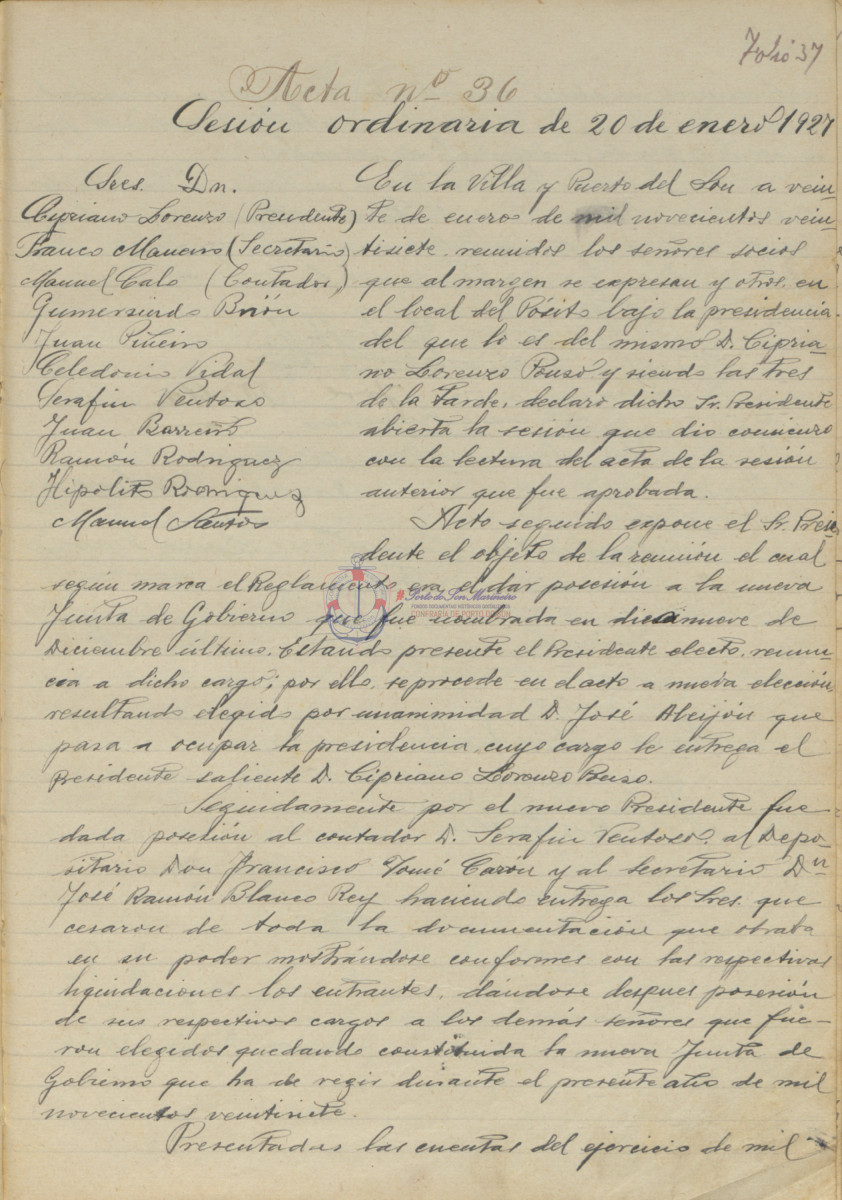 Folio 37
Acta nº 36
Sesión ordinaria de 20 de enero 1927
Sres. Dn.
Cypriano Lorenzo (Presidente)
Franco Maneiro (Secretario)
Manuel Calo (Contador)
Gumersindo Brión
Juan Piñeiro
Celedonio Vidal
Serafin Ventoso
Juan Barreiro
Ramón Rodriguez
Hipolito Rodriguez
Manuel Santos
En la Villa y Puerto del Son a vein-
te de enero de mil novecientos vein-
tisiete, reunidos los señores socios
que al margen se expresan y otros, en
el local del Pósito bajo la presidencia
del que lo es del mismo D. Cipria-
no Lorenzo Pouso y siendo las tres
de la tarde, declaro dicho Sr. Presidente
abierta la sesión que dio comienzo
con la lectura del acta de la sesión
anterior que fue aprobada.
Acto seguido expone el Sr. Presi-
dente el objeto de la reunión el cual
según marca el Reglamento era el dar posesión a la nueva
Junta de Gobierno que fue nombrada en diecinueve de
Diciembre último. Estando presente el Presidente electo, renun-
cia a dicho cargo; por ello, se procede en el acto a nueva elección
resultando elegido por unanimidad D. José Aleijón que
pasa a ocupar la presidencia, cuyo cargo le entrega el
Presidente saliente D. Cipriano Lorenzo Pouso.
Seguidamente por el nuevo Presidente fue
dada posesión al contador D. Serafin Ventoso, al Depo-
sitario Don Francisco Tomé Caron y al secretario Dn
José Ramón Blanco Rey haciendo entrega los Sres. que
cesaron de toda la documentación que obraba
en su poder mostrándose conformes con las respectivas
liquidaciones los entrantes, dándose despues posesión
de sus respectivos cargos a los demás señores que fue-
ron elegidos quedando constituida la nueva Junta de
Gobierno que ha de regir durante el presente año de mil
novecientos veintisiete.
Presentadas las cuentas del ejercicio de mil
Porto do Son Mariñeiro
FONDOS DOCUMENTAIS HISTÓRICOS DIXITALIZADOS
CONFRARÍA DE PORTO DO SON